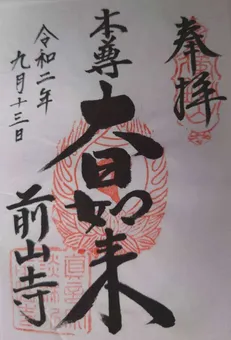 奉拝
本尊
大日如来
前山寺
令和二年
九月十三日